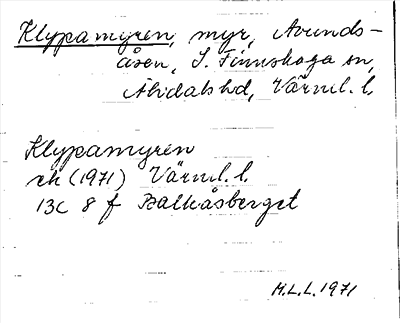 Klypamyren, myr, Avunds-
åsen, S. Finnskoga sn,
Älvdals hd, Värml. l.
Klypamyren
ek (1971) Värml. l.
13C 8 f Balkåsberget
H.L.L. 1971